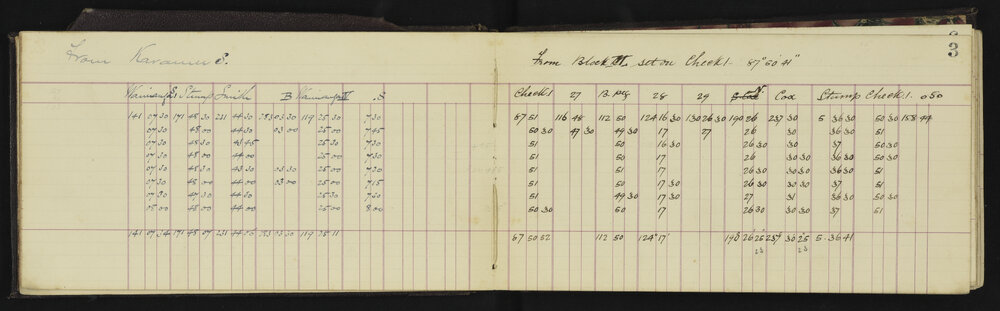 From Karamu S.
141 07.30 171 48.30 231 44.30 283 03.30 119 25.00 7.30
07.30 48.00 44.30 03.00 25.00 7.45
07.30 48.30 43.45 25.00 7.30
07.30 48.00 44.00 25.00 7.30
07.30 48.30 43.30 03.30 25.00 7.30
07.30 48.00 44.00 03.00 25.00 7.15
07.30 47.30 44.30 25.00 7.50
08.00 48.00 44.00 25.00 8.00
141 07.34 171 48.07 231 283 03.30 119 25.11
3
From Block VI. set on Check 1 87° 50' 41"
Check 1 27 B. peg 28 29 N. Cox Stump Check 1. 0 50
87 51 116 48 112 50 124 16 30 130 26 30 190 26 237 30 5 36 30 50 30 158 44
50 30 47 30 49 30 17 27 26 30 36 30 51
51 50 16 30 26 30 30 37 50 30
51 50 17 26 30 30 36 30 50 30
51 51 17 26 30 30 30 36 30 51
51 50 17 30 26 30 30 30 37 51
51 49 30 17 30 27 31 36 30 50 30
50 30 50 17 26 30 30 30 37 51
87 50 52 112 50 124° 17' 190 26 25 237 30 25 5. 36 41
23 23